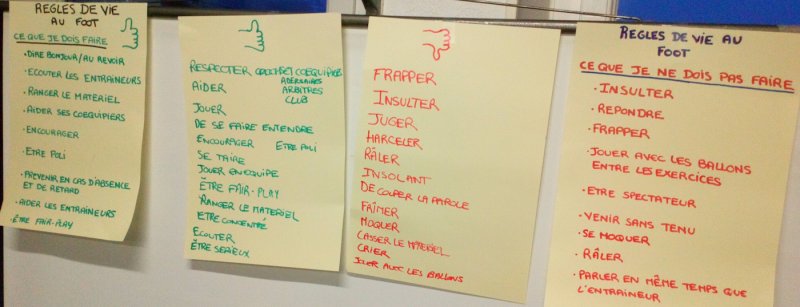 REGLES DE VIE
AU FOOT
CE QUE JE DOIS FAIRE
• DIRE BONJOUR / AU REVOIR
• ECOUTER LES ENTRAÎNEURS
• RANGER LE MATERIEL
• AIDER SES COEQUIPIERS
• ENCOURAGER
• ETRE POLI
• PREVENIR EN CAS D'ABSENCE
ET DE RETARD
• AIDER LES ENTRAINEURS
• ÊTRE FAIR-PLAY
RESPECTER COEQUIPIERS
ADERSAIRES
AIDER ARBITRES
CLUB
JOUER
DE SE FAIRE ENTENDRE
ENCOURAGER ETRE POLI
SE TAIRE
JOUER EN EQUIPE
ÊTRE FAIR-PLAY
RANGER LE MATERIEL
ETRE CONCENTRÉ
ECOUTER
ÊTRE SERIEUX
FRAPPER
INSULTER
JUGER
HARCELER
RÂLER
INSOLANT
DE COUPER LA PAROLE
FRÎMER
MOQUER
CASSER LE MATERIEL
CRIER
JOUER AVEC LES BALLONS
REGLES DE VIE AU
FOOT
CE QUE JE NE DOIS PAS FAIRE
• INSULTER
• REPONDRE
• FRAPPER
• JOUER AVEC LES BALLONS
ENTRE LES EXERCICES
• ETRE SPECTATEUR
• VENIR SANS TENU
• SE MOQUER
• RÂLER
• PARLER EN MÊME TEMPS QUE
L'ENTRAÎNEUR